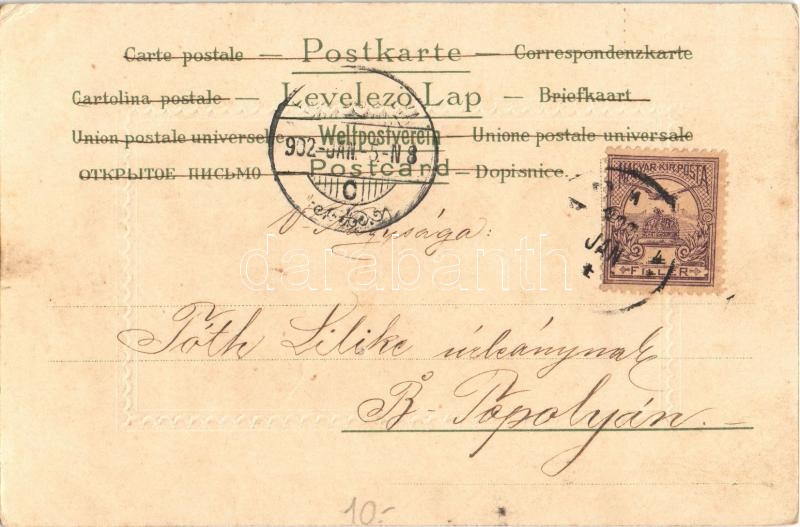 Carte postale — Postkarte — Correspondenzkarte
Cartolina postale — Levelező Lap — Briefkaart
Union postale universelle Weltpostverein — Unione postale universale
ОТКРЫТОЕ ПИСЬМО — Postcard — Dopisnice.
902-JAN.-5-N 8
C
MAGYAR·KIR·POSTA
JAN
4
FILLÉR
Nagysága:
darabanth
Tóth Lilike úrleánynak
B-Topolyán.
10.-